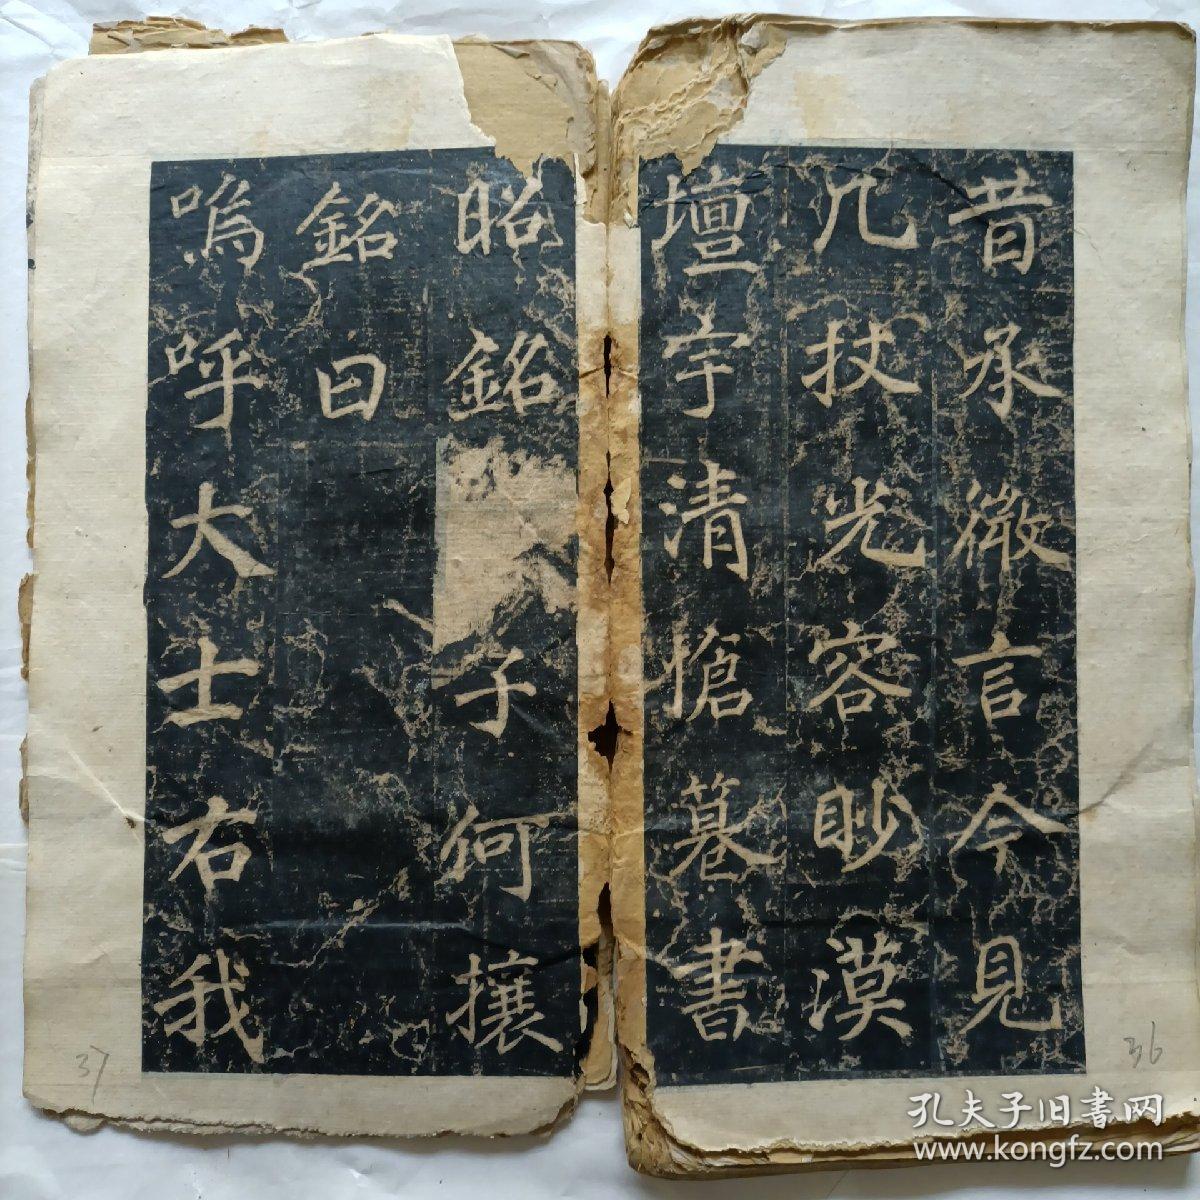 昔承微言今見
几杖光容眇漠
壇宇清愴篹書
昭銘
子何攘
銘曰
嗚呼大士右我
36
37
孔夫子旧書网
www.kongfz.com